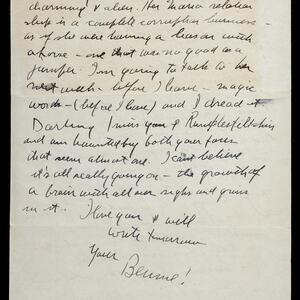 charming & alien. Her Maria relation
ship is a complete corruption business –
as if she were having a liason with
a horse – one that was no good as a
jumper. I'm going to talk to her
next week – before I leave – magic
words – (before I leave) and I dread it
Darling I miss you & Rumplestiltskin
and am haunted by both your faces
that seem almost one. I can't believe
it's all really going on – the growth of
a brain with all our sighs and guns
in it.
I love you & will
write tomorrow
Your